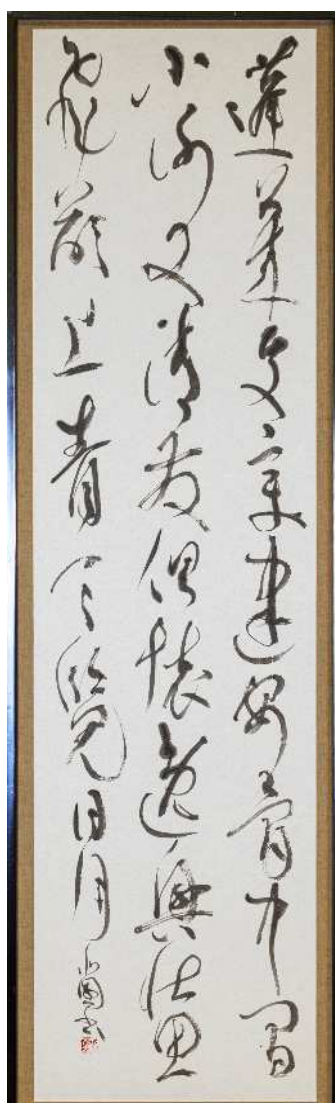 蓬萊文章建安骨中間
小謝又清發俱懷逸興壯思
飛欲上青天覽日月